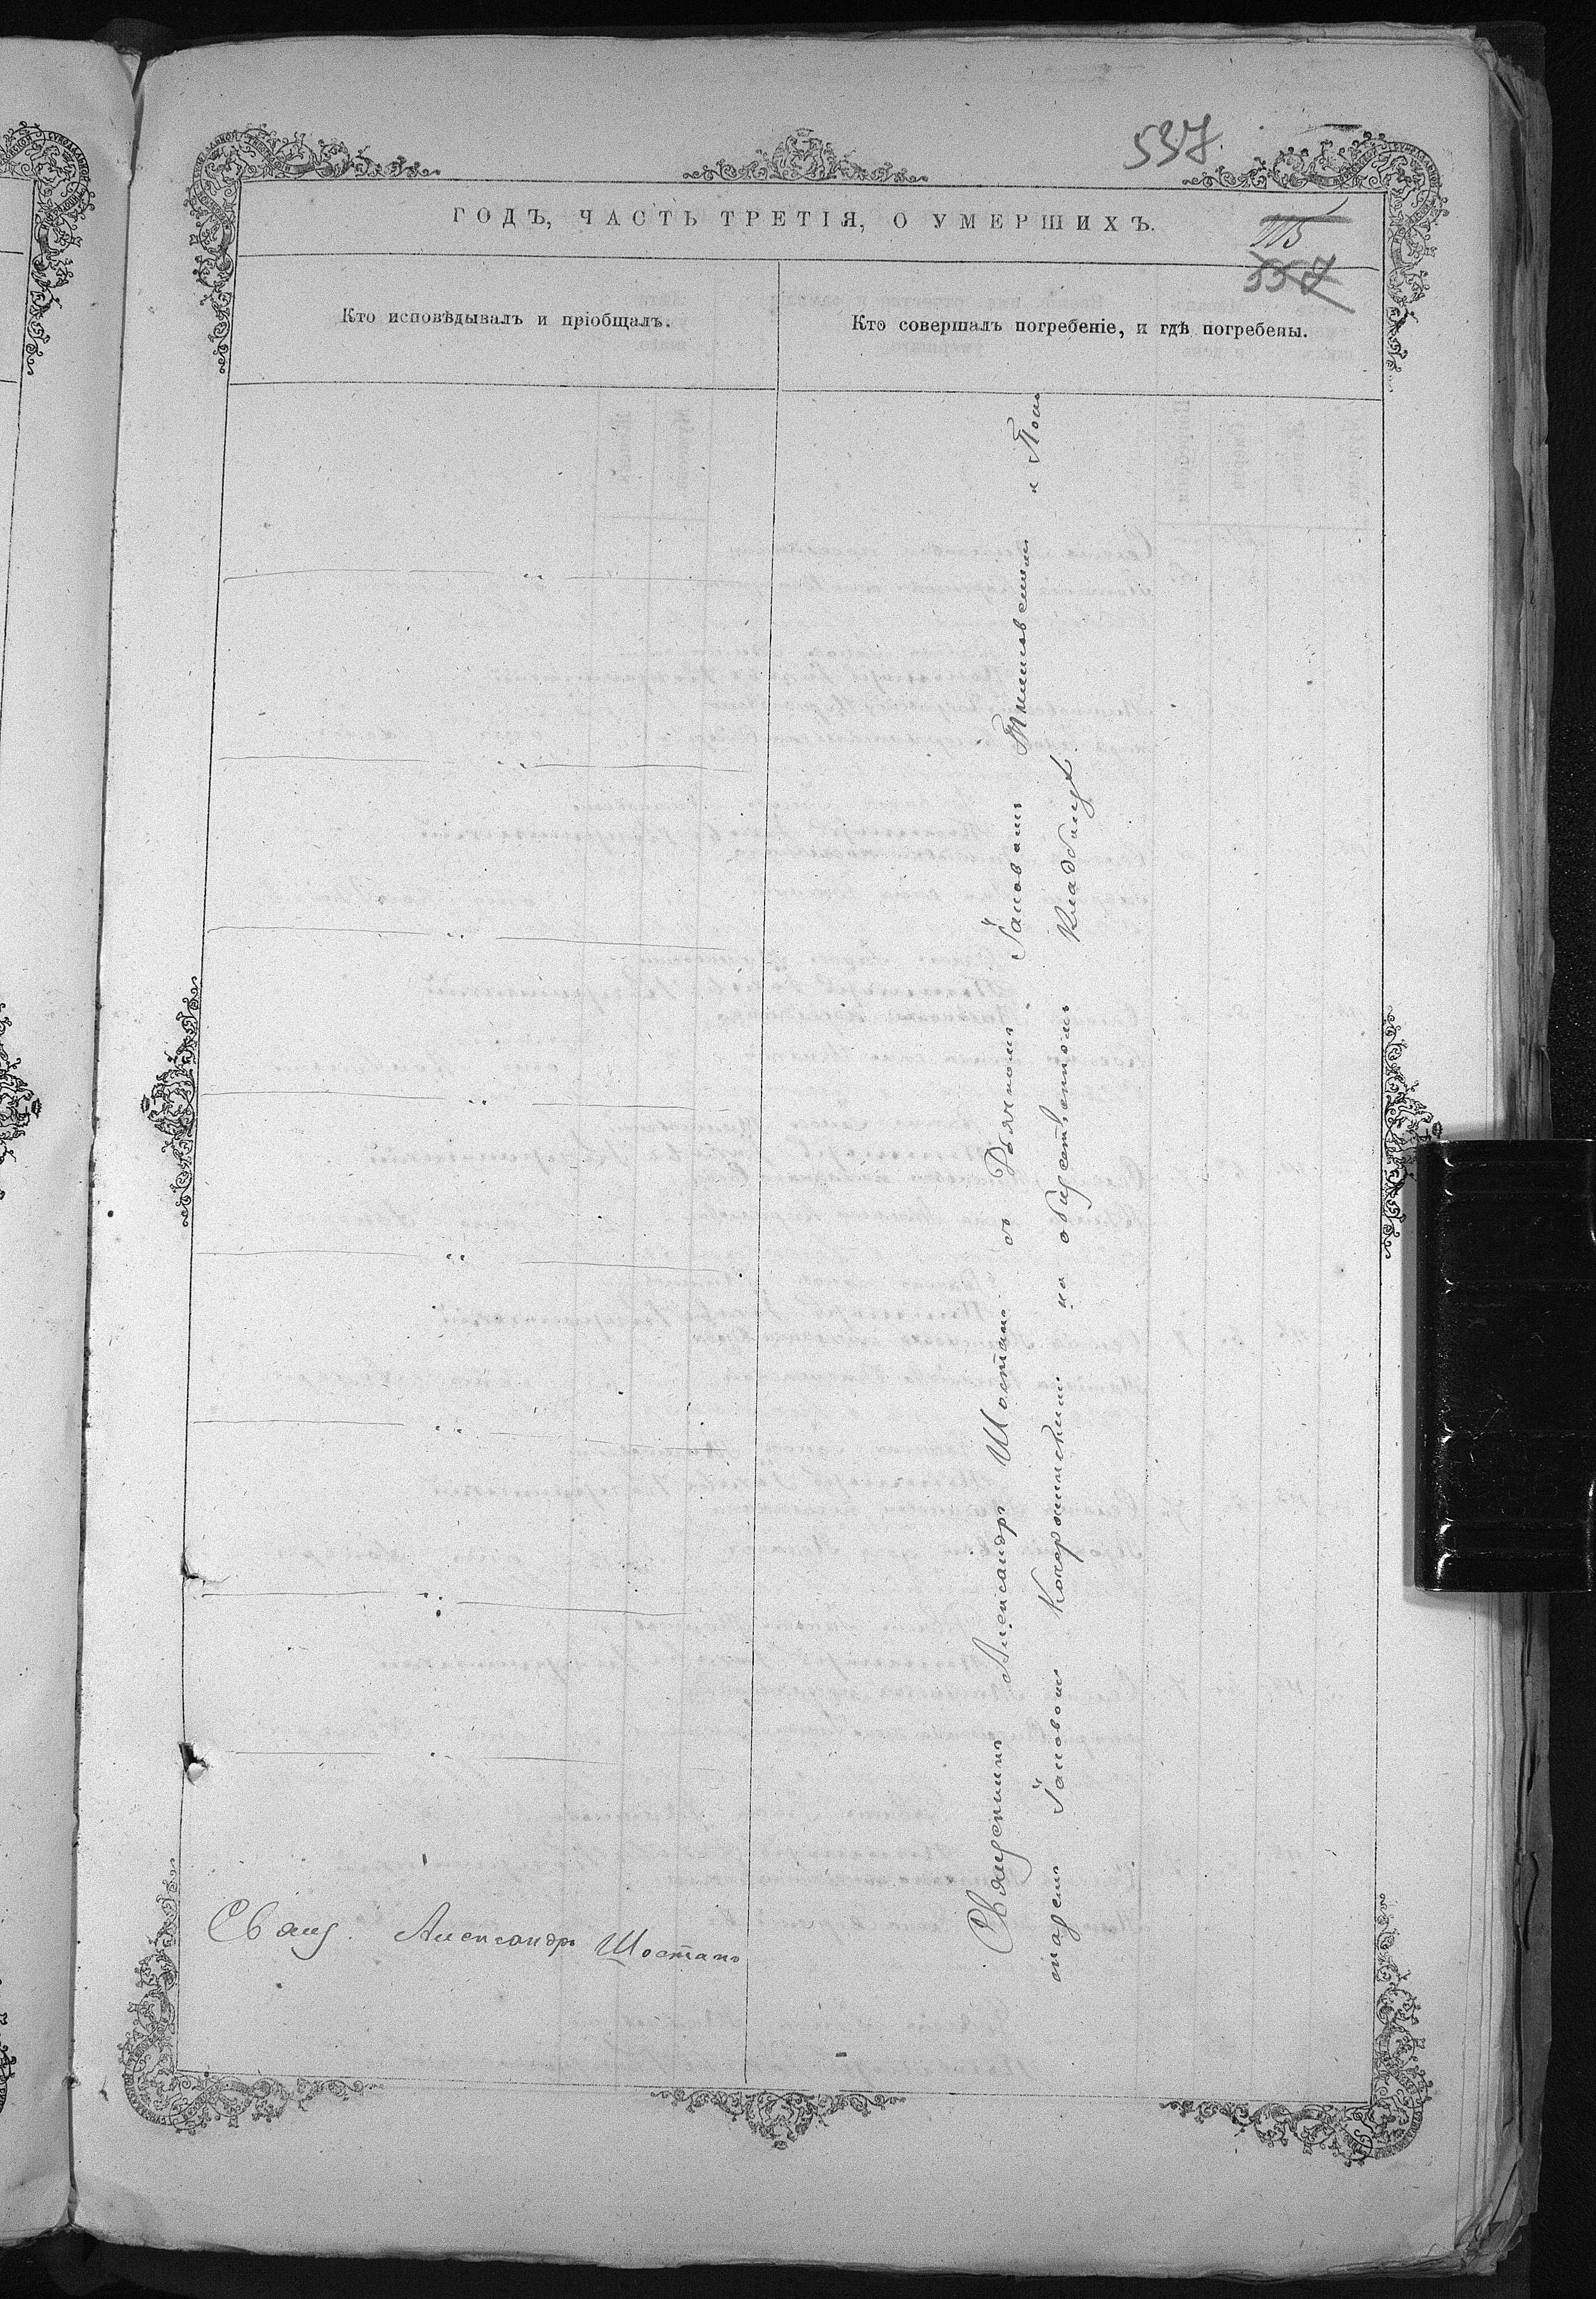 537.
ГОДЪ, ЧАСТЬ ТРЕТІЯ, О УМЕРШИХЪ.
115
337
Кто исповѣдывалъ и пріобщалъ.
Кто совершалъ погребеніе, и гдѣ погребены.
Свящ. Александръ Шостакъ
Священникъ Александръ Шостакъ съ Дьячкомъ Іаковомъ и Поно
маремъ Іаковомъ на общественномъ кладбищѣ